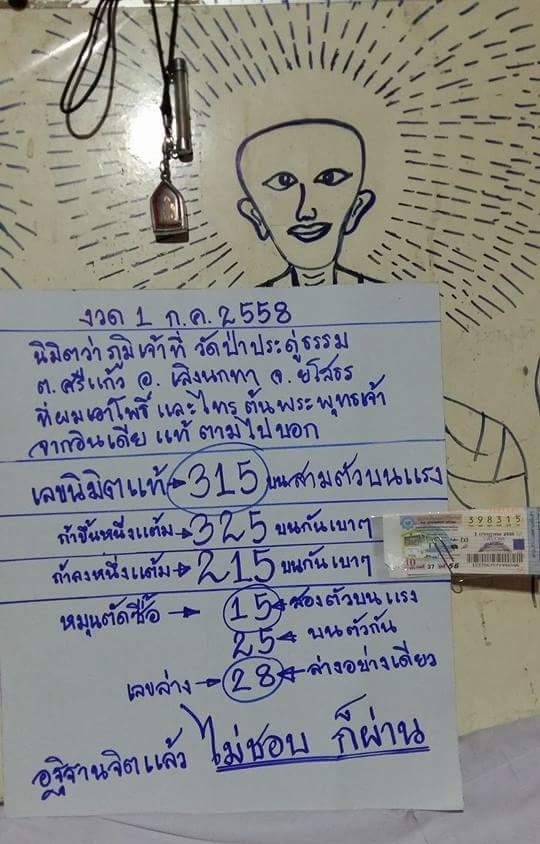 งวด 1 ก.ค. 2558
นิมิตว่า ภูมิเจ้าที่ วัดป่าประตู่ธรรม
ต. ศรีแก้ว อ. เลิงนกทา จ. ยโสธร
ที่ผมเอาโพธิ์ และไทร ต้นพระพุทธเจ้า
จากอินเดีย แท้ ตามไปบอก
เลขนิมิตแท้→315 บนสามตัวบนแรง
ถ้าขึ้นหนึ่งแต้ม→325 บนกันเบาๆ
ถ้าลงหนึ่งแต้ม→215 บนกันเบาๆ
398315
1 กรกฎาคม 2558
37 56
หมุนตัดชื้อ → 15 ← สองตัวบนแรง
25 ← บนตัวกัน
เลขล่าง → 28 ← ล่างอย่างเดียว
อฐิฐานจิตแล้ว ไม่ชอบ ก็ผ่าน